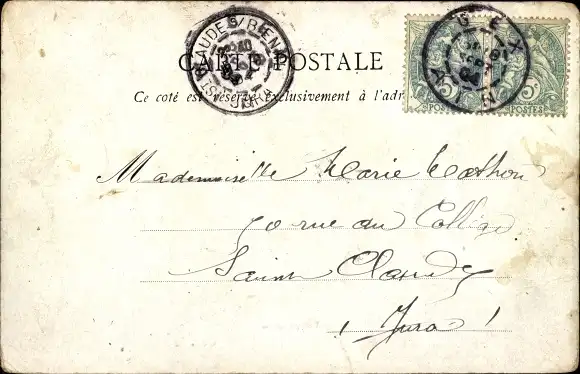 CARTE POSTALE
Ce coté est réservé exclusivement à l'adr
GEX
AIN
5c
POSTES
5c
POSTES
Mademoiselle Marie
70 rue du Collège
Saint Claude
(Jura)